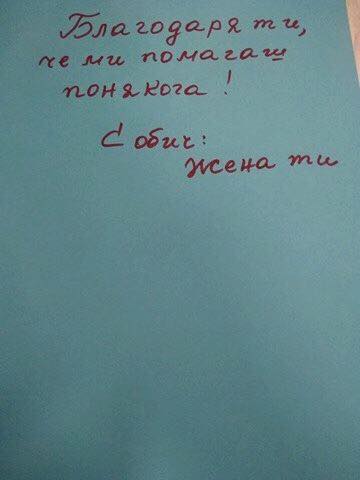 Благодаря ти,
че ми помагаш
понякога!
С обич:
жена ти